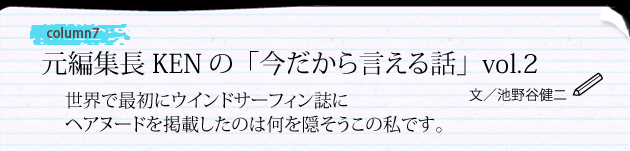 column7
元編集長 KEN の「今だから言える話」vol.2
文／池野谷健二
世界で最初にウインドサーフィン誌に
ヘアヌードを掲載したのは何を隠そうこの私です。